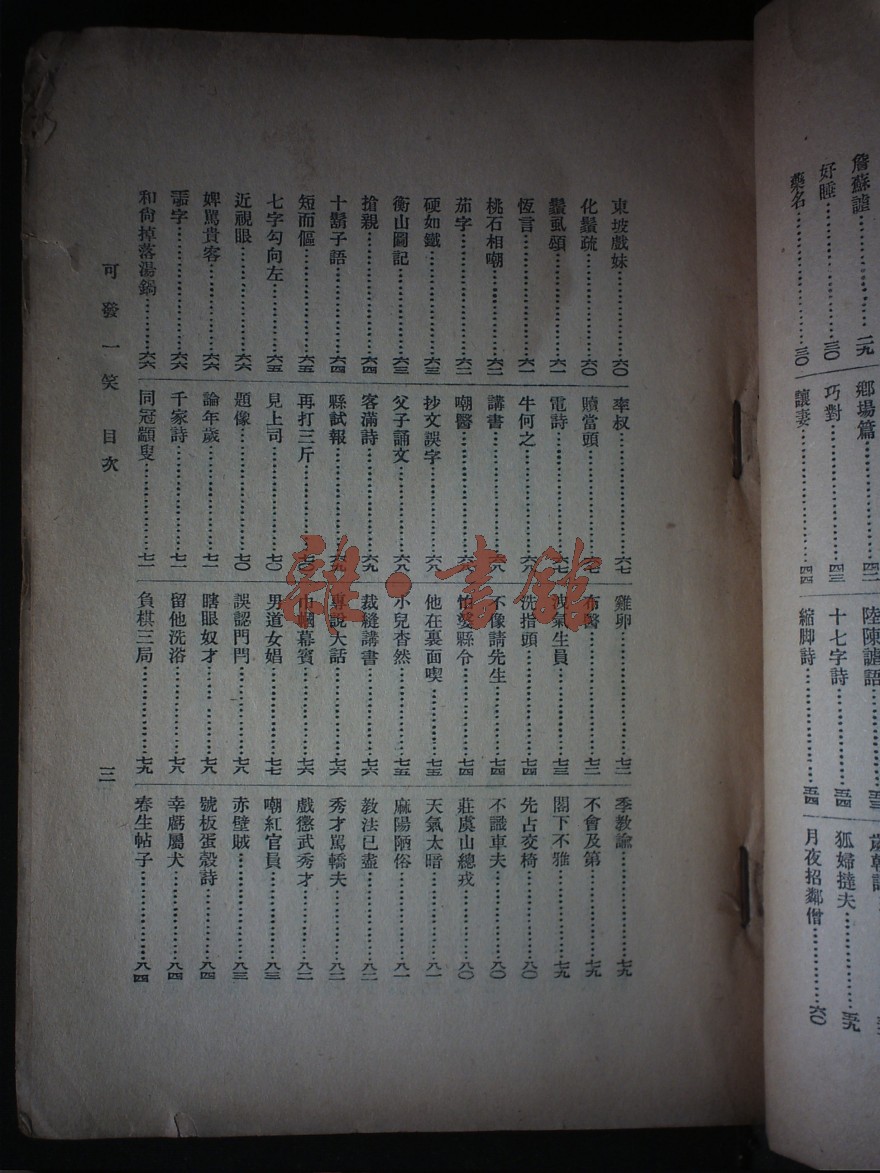 詹蘇謔……二九
好睡……三〇
藥名……三〇
鄉場篇……四二
巧對……四三
讓妻……四四
陸陳謔語……五三
十七字詩……五四
縮脚詩……五四
狐婦撻夫……五九
月夜招鄰僧……六〇
東坡戲妹……六〇
化鬚疏……六〇
鬚虱頌……六一
恆言……六一
桃石相嘲……六二
茄字……六二
硬如鐵……六三
衡山圖記……六三
搶親……六四
十鬍子語……六四
短而傴……六五
七字勾向左……六五
近視眼……六六
婢罵貴客……六六
字……六六
和尙掉落湯鍋……六六
叔……六七
贖當頭……六七
電詩……六七
牛何之……六八
講書……六八
嘲醫……六八
抄文誤字……六八
父子誦文……六八
客滿詩……六九
縣試報……六九
再打三斤……七〇
見上司……七〇
題像……七〇
論年歲……七一
千家詩……七一
同冠顓叟……七一
雞卵……七二
布客……七二
洩氣生員……七三
洗指頭……七四
不像請先生……七四
怕婆縣令……七四
他在裏面喫……七五
小兒杳然……七五
裁縫講書……七六
專說大話……七六
巾幗幕賓……七六
男道女娼……七七
誤認門閂……七八
瞎眼奴才……七八
留他洗浴……七八
負棋三局……七九
季教諭……七九
不會及第……七九
閣下不雅……七九
先占交椅……八〇
不識車夫……八〇
莊虞山總戎……八〇
天氣太暗……八一
麻陽陋俗……八一
教法已盡……八二
秀才罵轎夫……八二
戲懲武秀才……八二
嘲紅官員……八三
赤壁賊……八三
號板蛋殼詩……八四
幸虧屬犬……八四
春生帖子……八四
可發一笑 目次
三
雜·書館